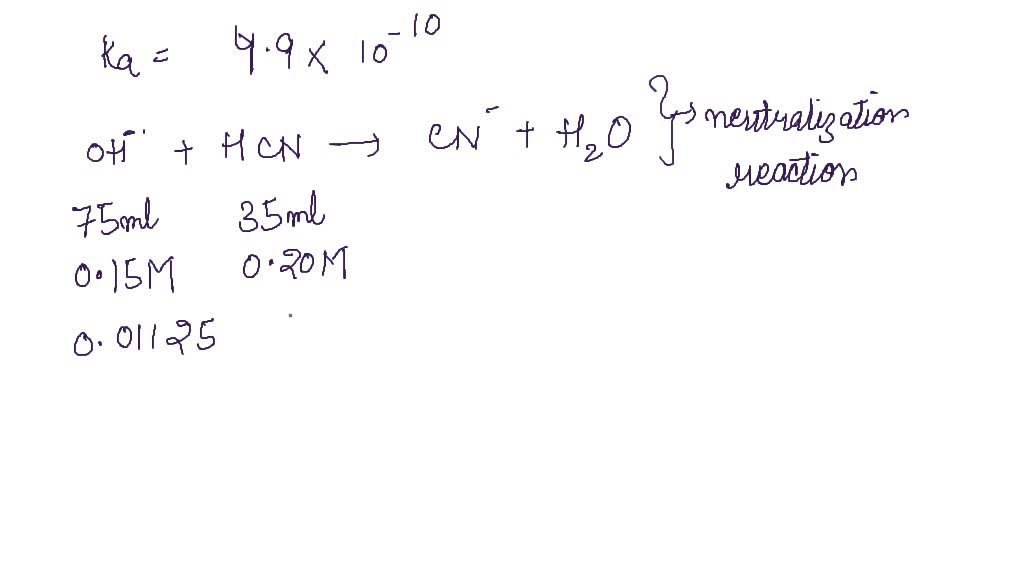 Ka = 4.9 × 10⁻¹⁰
OH⁻ + HCN → CN⁻ + H₂O } → neutralization reaction
75ml 35ml
0.15M 0.20M
0.01125